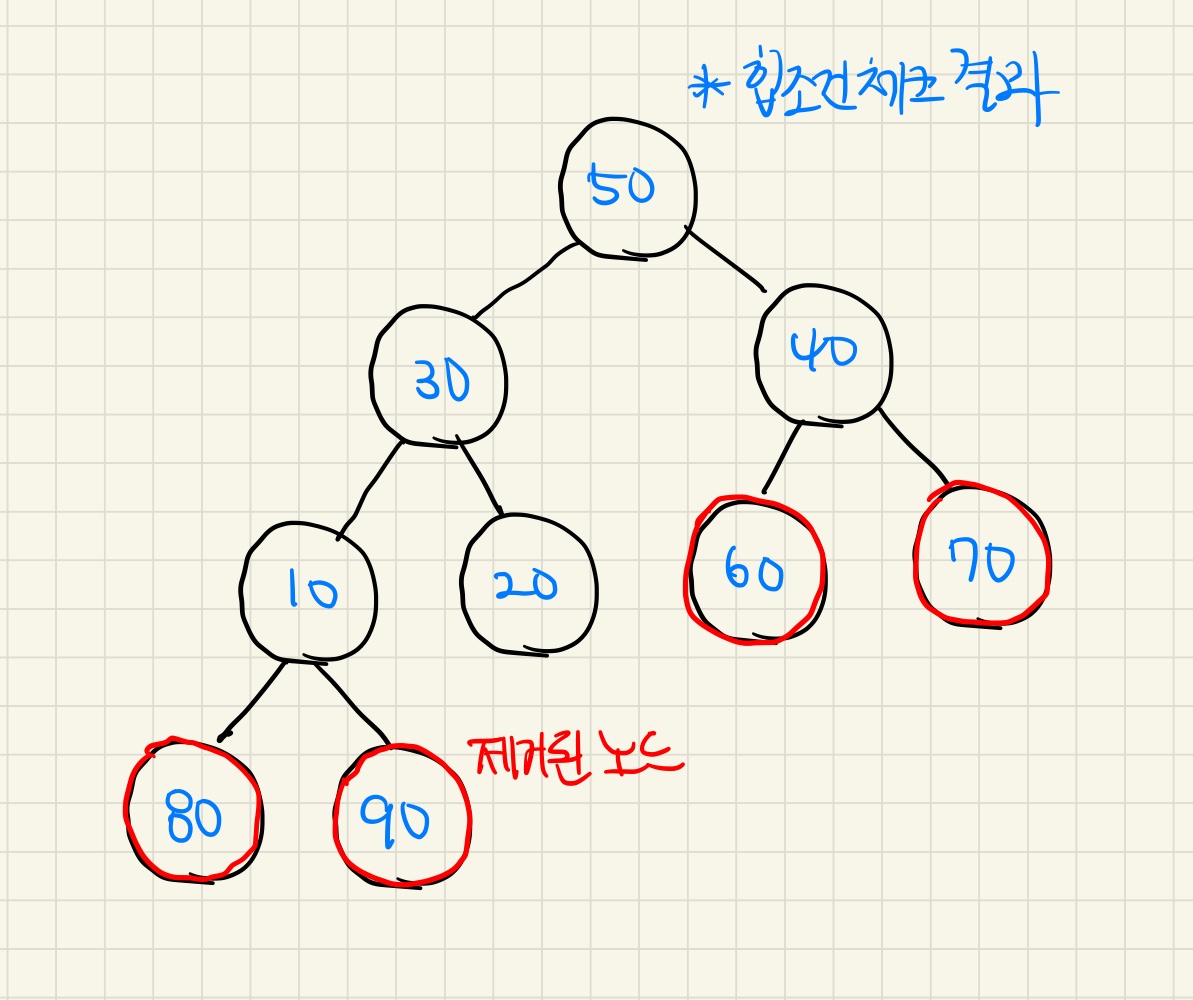 * 힙조건체크 결과
50
30 40
10 20 60 70
80 90 제거된 노드